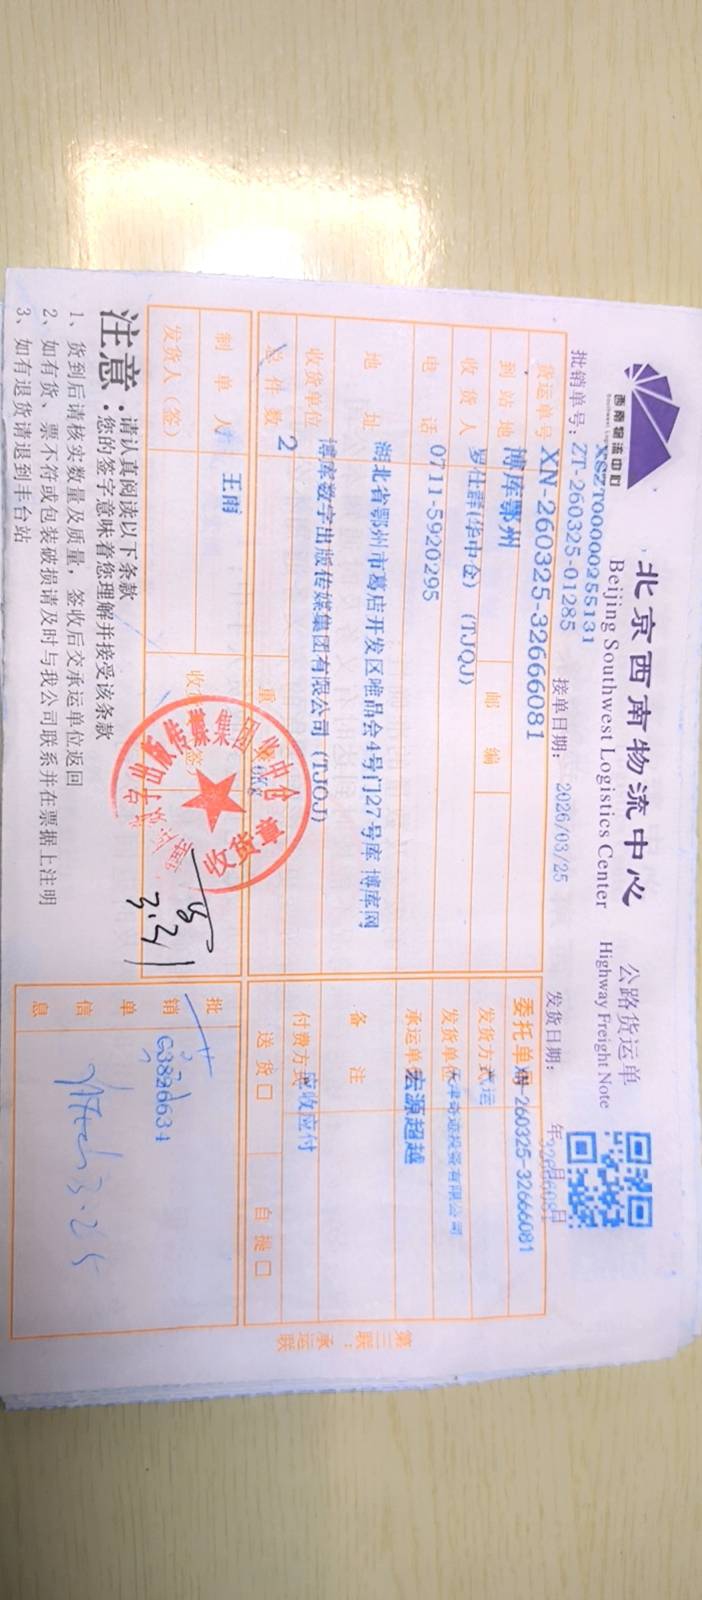 西南物流中心
北京西南物流中心 公路货运单
Beijing Southwest Logistics Center Highway Freight Note
XSZT00000255131
批销单号: ZT-260325-01285 接单日期: 2026/03/25 发货日期: 年 月 日
货运单号 XN-260325-32666081 委托单号 XN-260325-32666081
到站地 博库鄂州 邮编 发货方式
收货人 罗仕群(华中仓) (TJQJ) 发货单位 天津奇迹投资有限公司
电话 0711-5920295 承运单位 宏源超越
地址 湖北省鄂州市葛店开发区唯品会4号门27号库 博库网 备注
收货单位 博库数字出版传媒集团有限公司(TJQJ) 付费方式 应收应付
总件数 2 重量 0KG 送货□ 自提□
制单人 王雨 批销单信息 G3826634
发货人(签)
3.31
3.25
收货章
注意: 请认真阅读以下条款
您的签字意味着您理解并接受该条款
1、货到后请核实数量及质量,签收后交承运单位返回
2、如有货、票不符或包装破损请及时与我公司联系并在票据上注明
3、如有退货请退到丰台站
第三联:承运联